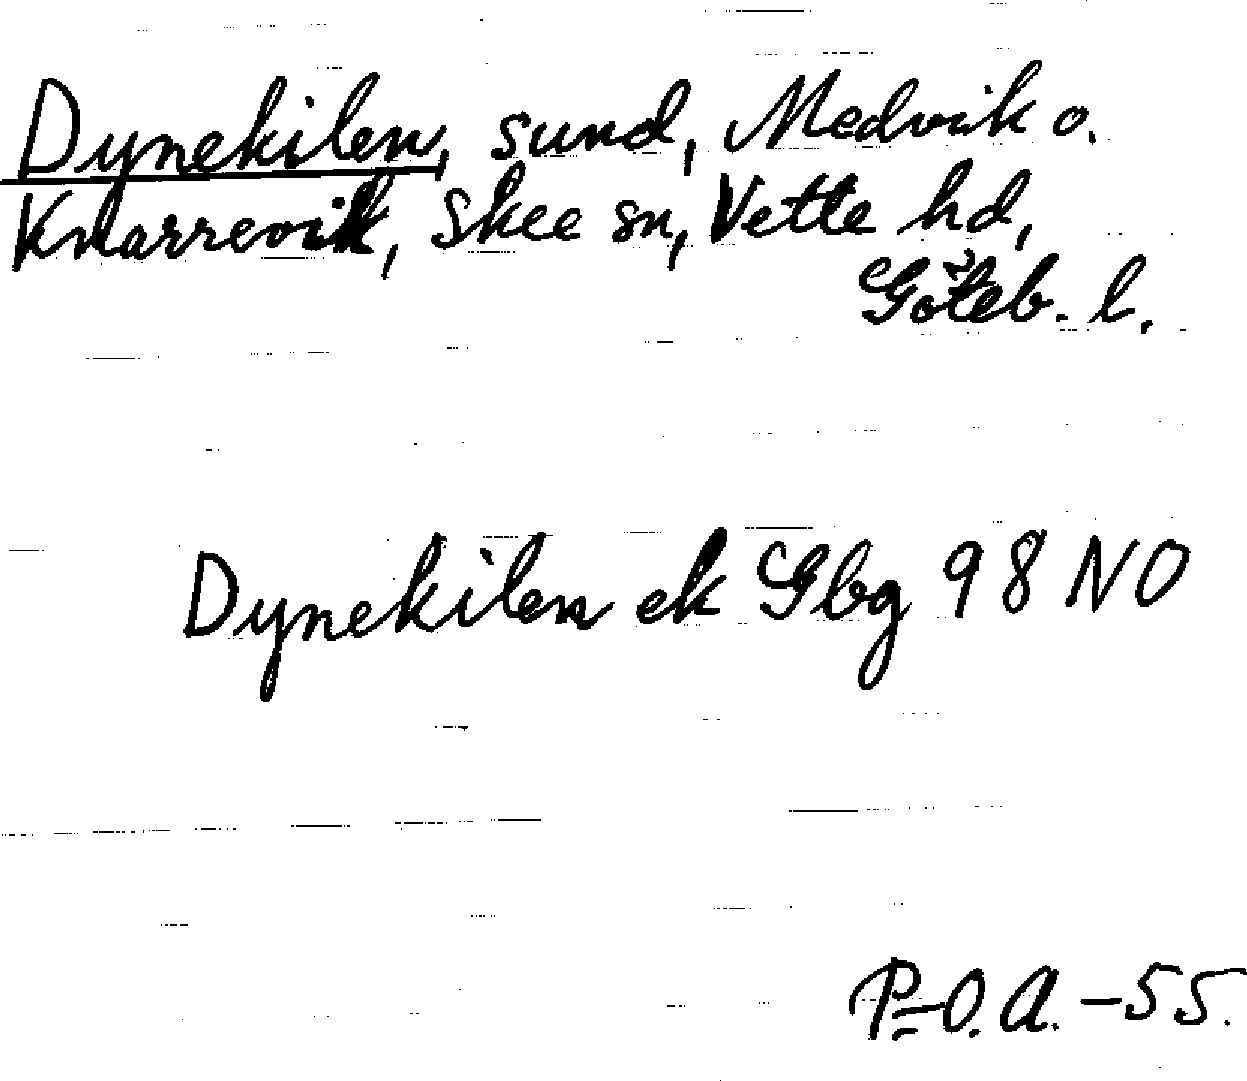 Dynekilen, sund, Medvik o.
Knarrevik, Skee sn, Vette hd,
Göteb. l.
Dynekilen ek Gbg 98 NO
P-O. A. -55.